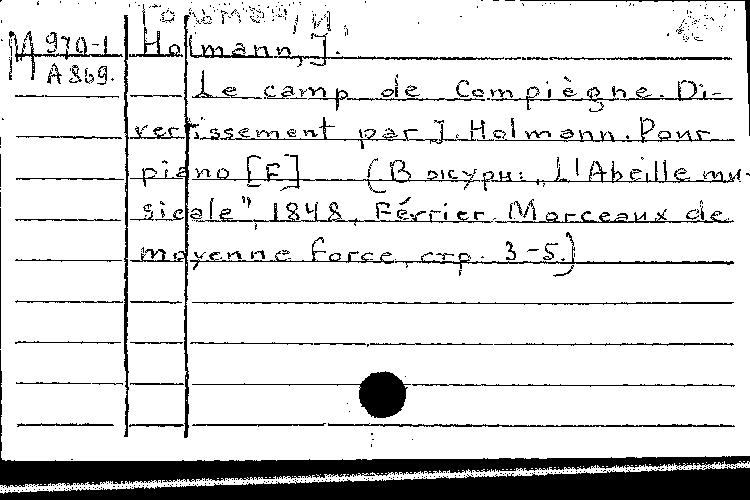 Гольман, И.
М 970-1
А869.
Holmann, J.
Le camp de Compiègne. Di-
vertissement par J. Holmann. Pour
piano [F] (В журн: „L'Abeille mu-
sicale", 1848, Février. Morceaux de
moyenne force, стр. 3-5.)